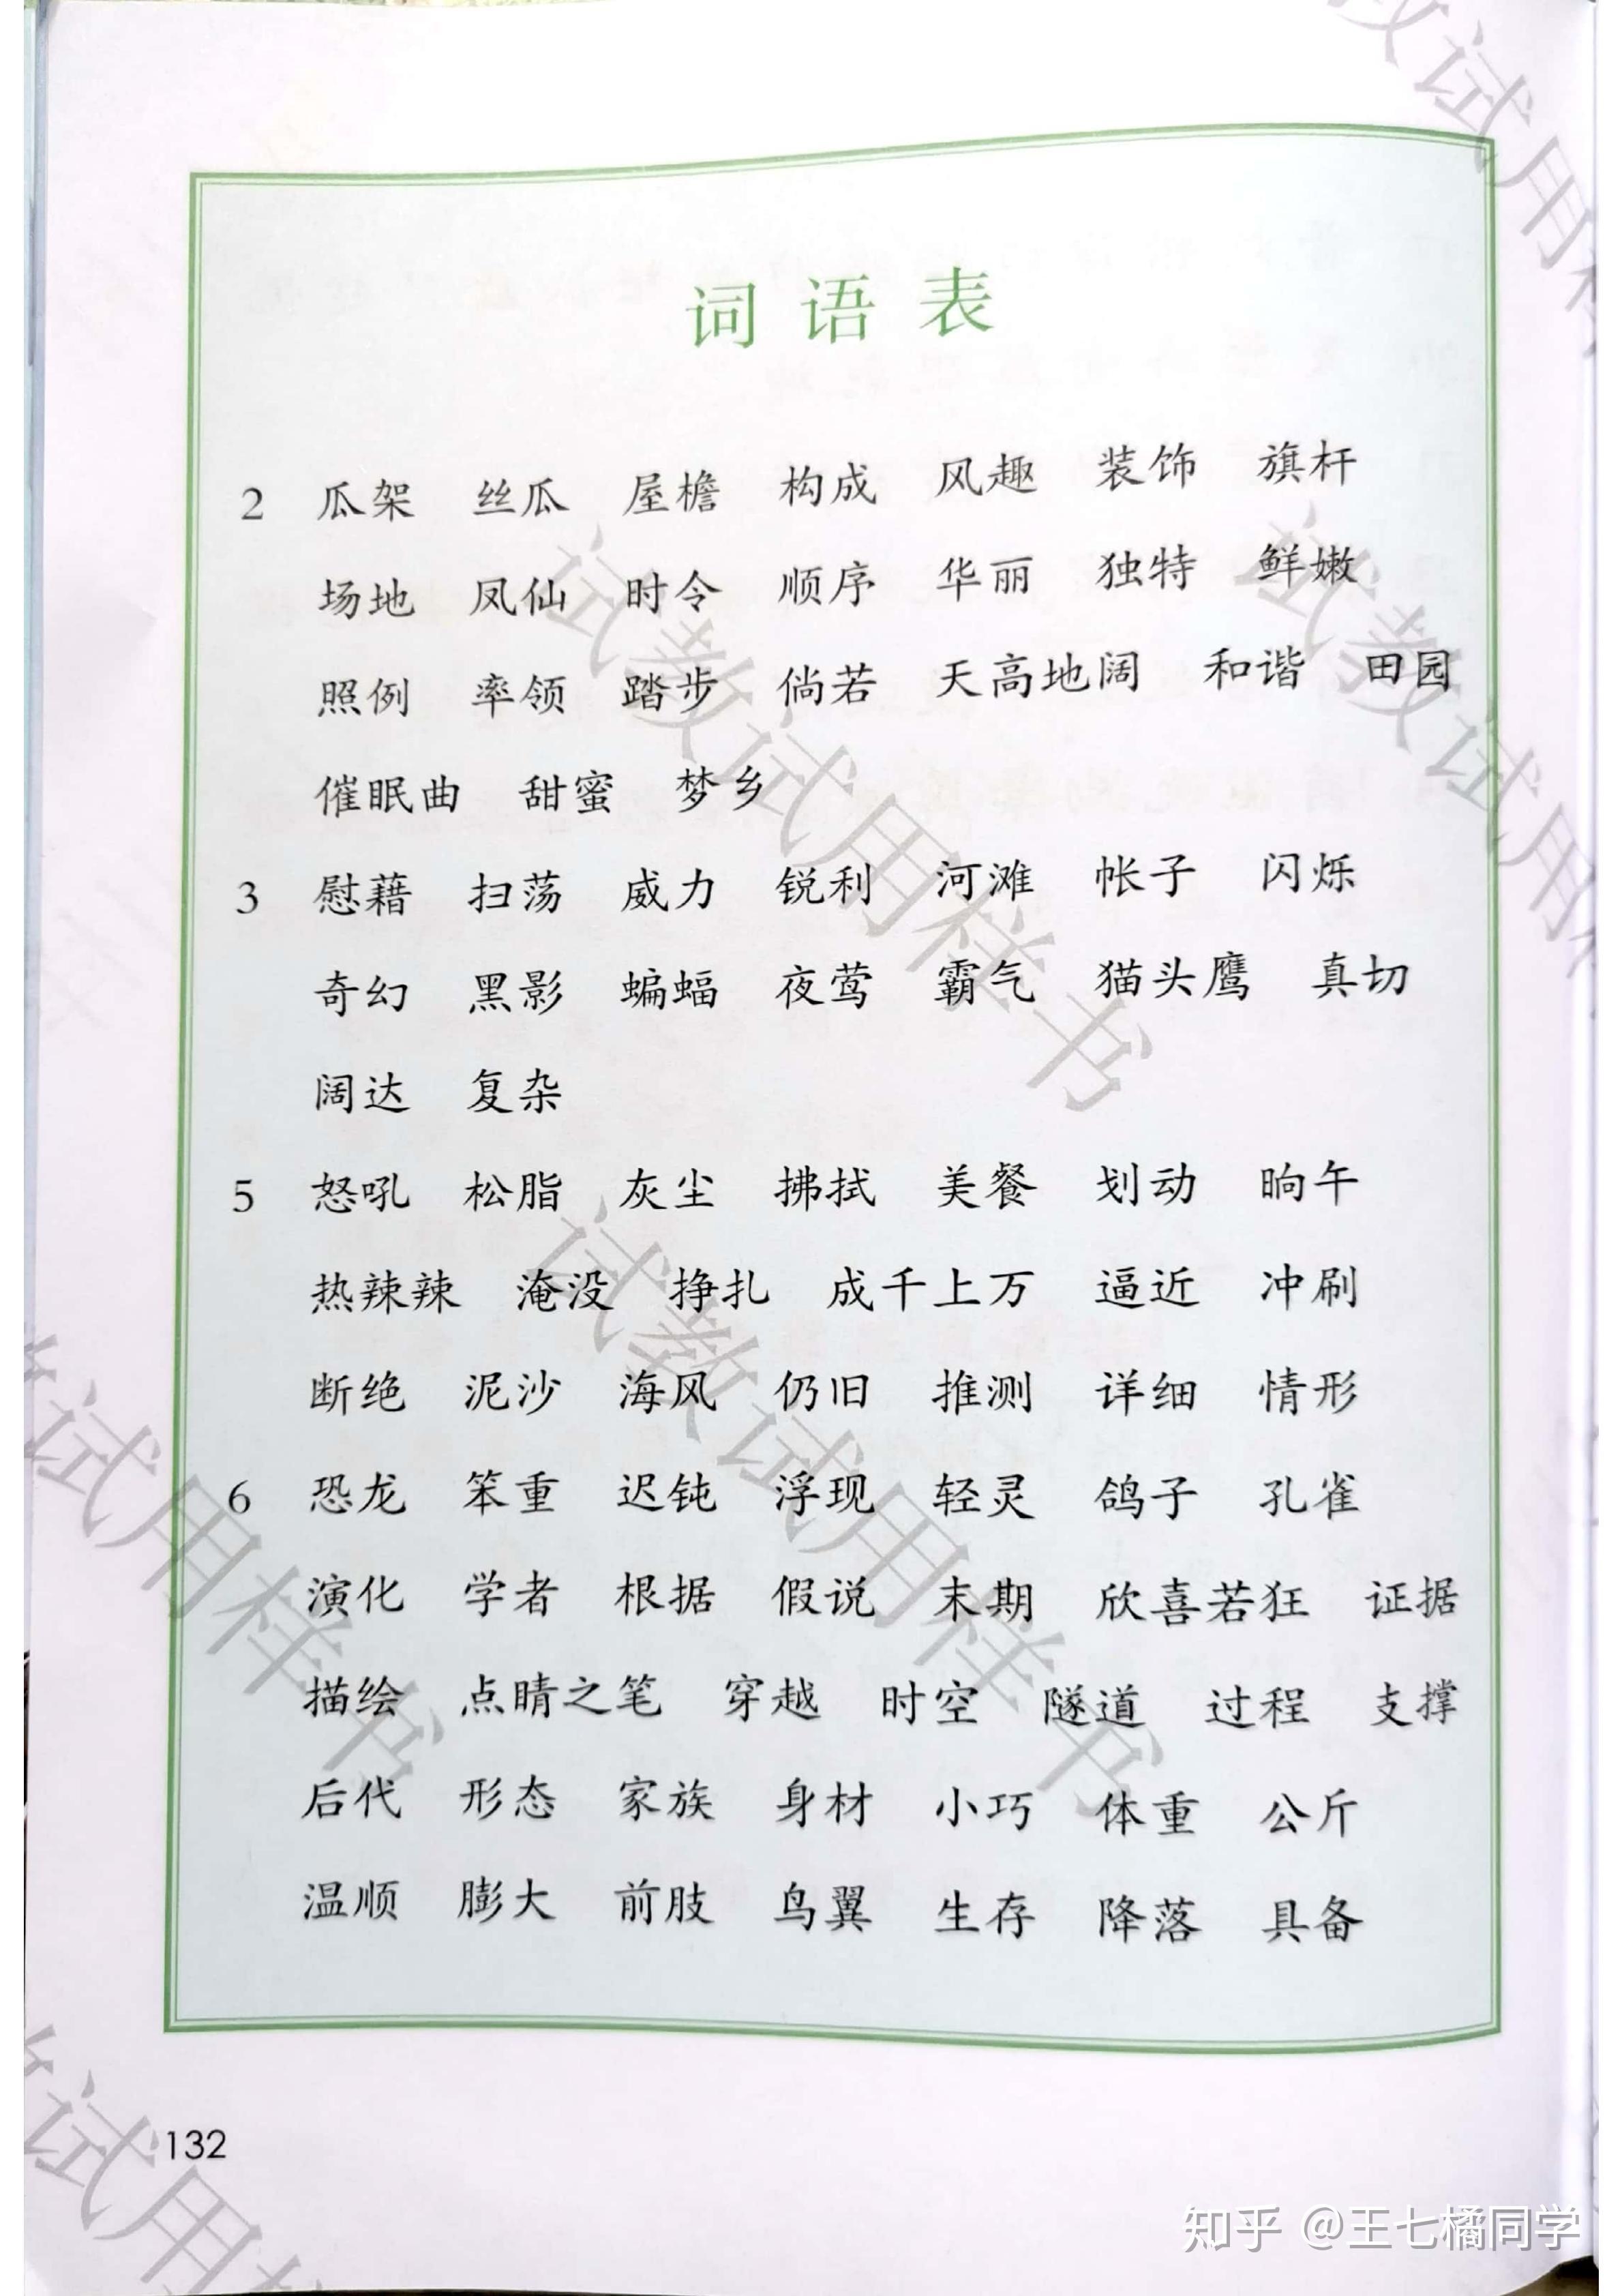 词语表
2 瓜架 丝瓜 屋檐 构成 风趣 装饰 旗杆
场地 凤仙 时令 顺序 华丽 独特 鲜嫩
照例 率领 踏步 倘若 天高地阔 和谐 田园
催眠曲 甜蜜 梦乡
3 慰藉 扫荡 威力 锐利 河滩 帐子 闪烁
奇幻 黑影 蝙蝠 夜莺 霸气 猫头鹰 真切
阔达 复杂
5 怒吼 松脂 灰尘 拂拭 美餐 划动 晌午
热辣辣 淹没 挣扎 成千上万 逼近 冲刷
断绝 泥沙 海风 仍旧 推测 详细 情形
6 恐龙 笨重 迟钝 浮现 轻灵 鸽子 孔雀
演化 学者 根据 假说 末期 欣喜若狂 证据
描绘 点睛之笔 穿越 时空 隧道 过程 支撑
后代 形态 家族 身材 小巧 体重 公斤
温顺 膨大 前肢 鸟翼 生存 降落 具备
132
试教试用样书
试教试用样书
试教试用样书
知乎 @王七橘同学